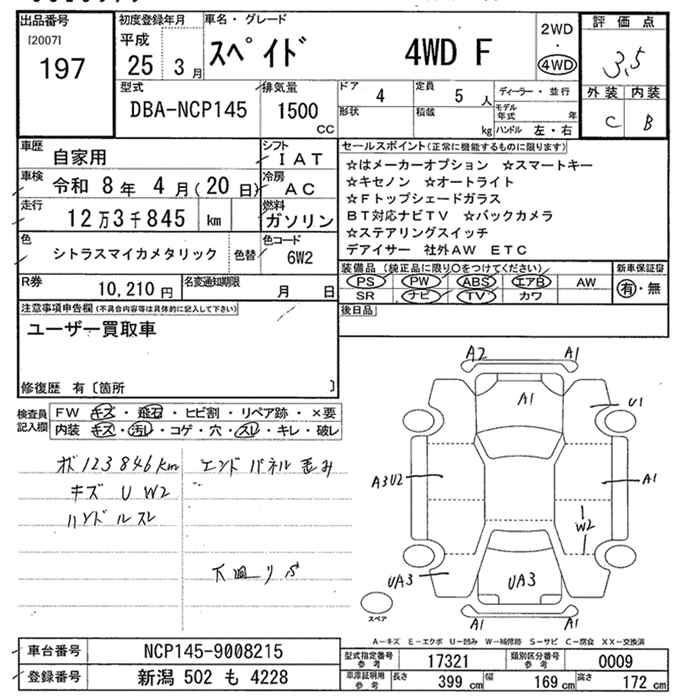 出品番号
[2007]
197
初度登録年月
平成
25 3月
車名・グレード
スペイド 4WD F
2WD
・
4WD
評価点
3.5
外装 内装
C B
型式
DBA-NCP145
排気量
1500
cc
ドア
4
定員
5 人
形状
積載
kg
ディーラー・並行
モデル年式 年
ハンドル 左・右
車歴
自家用
シフト
IAT
車検
令和 8年 4月(20日)
冷房
AC
走行
12万3千845 km
燃料
ガソリン
色
シトラスマイカメタリック
色替
色コード
6W2
R券
10,210円
名変通知期限
月 日
セールスポイント(正常に機能するものに限ります)
☆はメーカーオプション ☆スマートキー
☆キセノン ☆オートライト
☆Fトップシェードガラス
BT対応ナビTV ☆バックカメラ
☆ステアリングスイッチ
デアイサー 社外AW ETC
装備品(純正品に限り○をつけてください)
新車保証書
PS PW ABS エアB AW
SR ナビ TV カワ
有・無
注意事項申告欄(不具合内容等は具体的に記入して下さい)
ユーザー買取車
修復歴 有〔箇所 〕
後日品
検査員
記入欄
FW キズ・飛石・ヒビ割・リペア跡・×要
内装 キズ・汚レ・コゲ・穴・スレ・キレ・破レ
ボ123846km
キズ U W2
ハンドルスレ
エンドパネル歪み
下廻りS
A2 A1
A1
U1
A3U2
A1
W2
UA3
UA3
A1 A1
スペア
A−キズ E−エクボ U−凹み W−補修跡 S−サビ C−腐食 XX−交換済
車台番号
NCP145-9008215
登録番号
新潟 502 も 4228
型式指定番号
参考
17321
類別区分番号
参考
0009
車庫証明用
参考
長さ
399 cm
幅
169 cm
高さ
172 cm